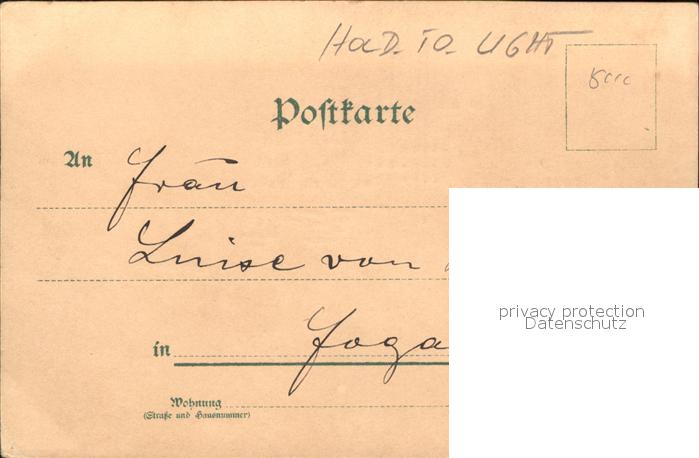 HOLD TO LIGHT
Postkarte
An Frau
Luise von
in
Wohnung
(Straße und Hausnummer)
privacy protection
Datenschutz